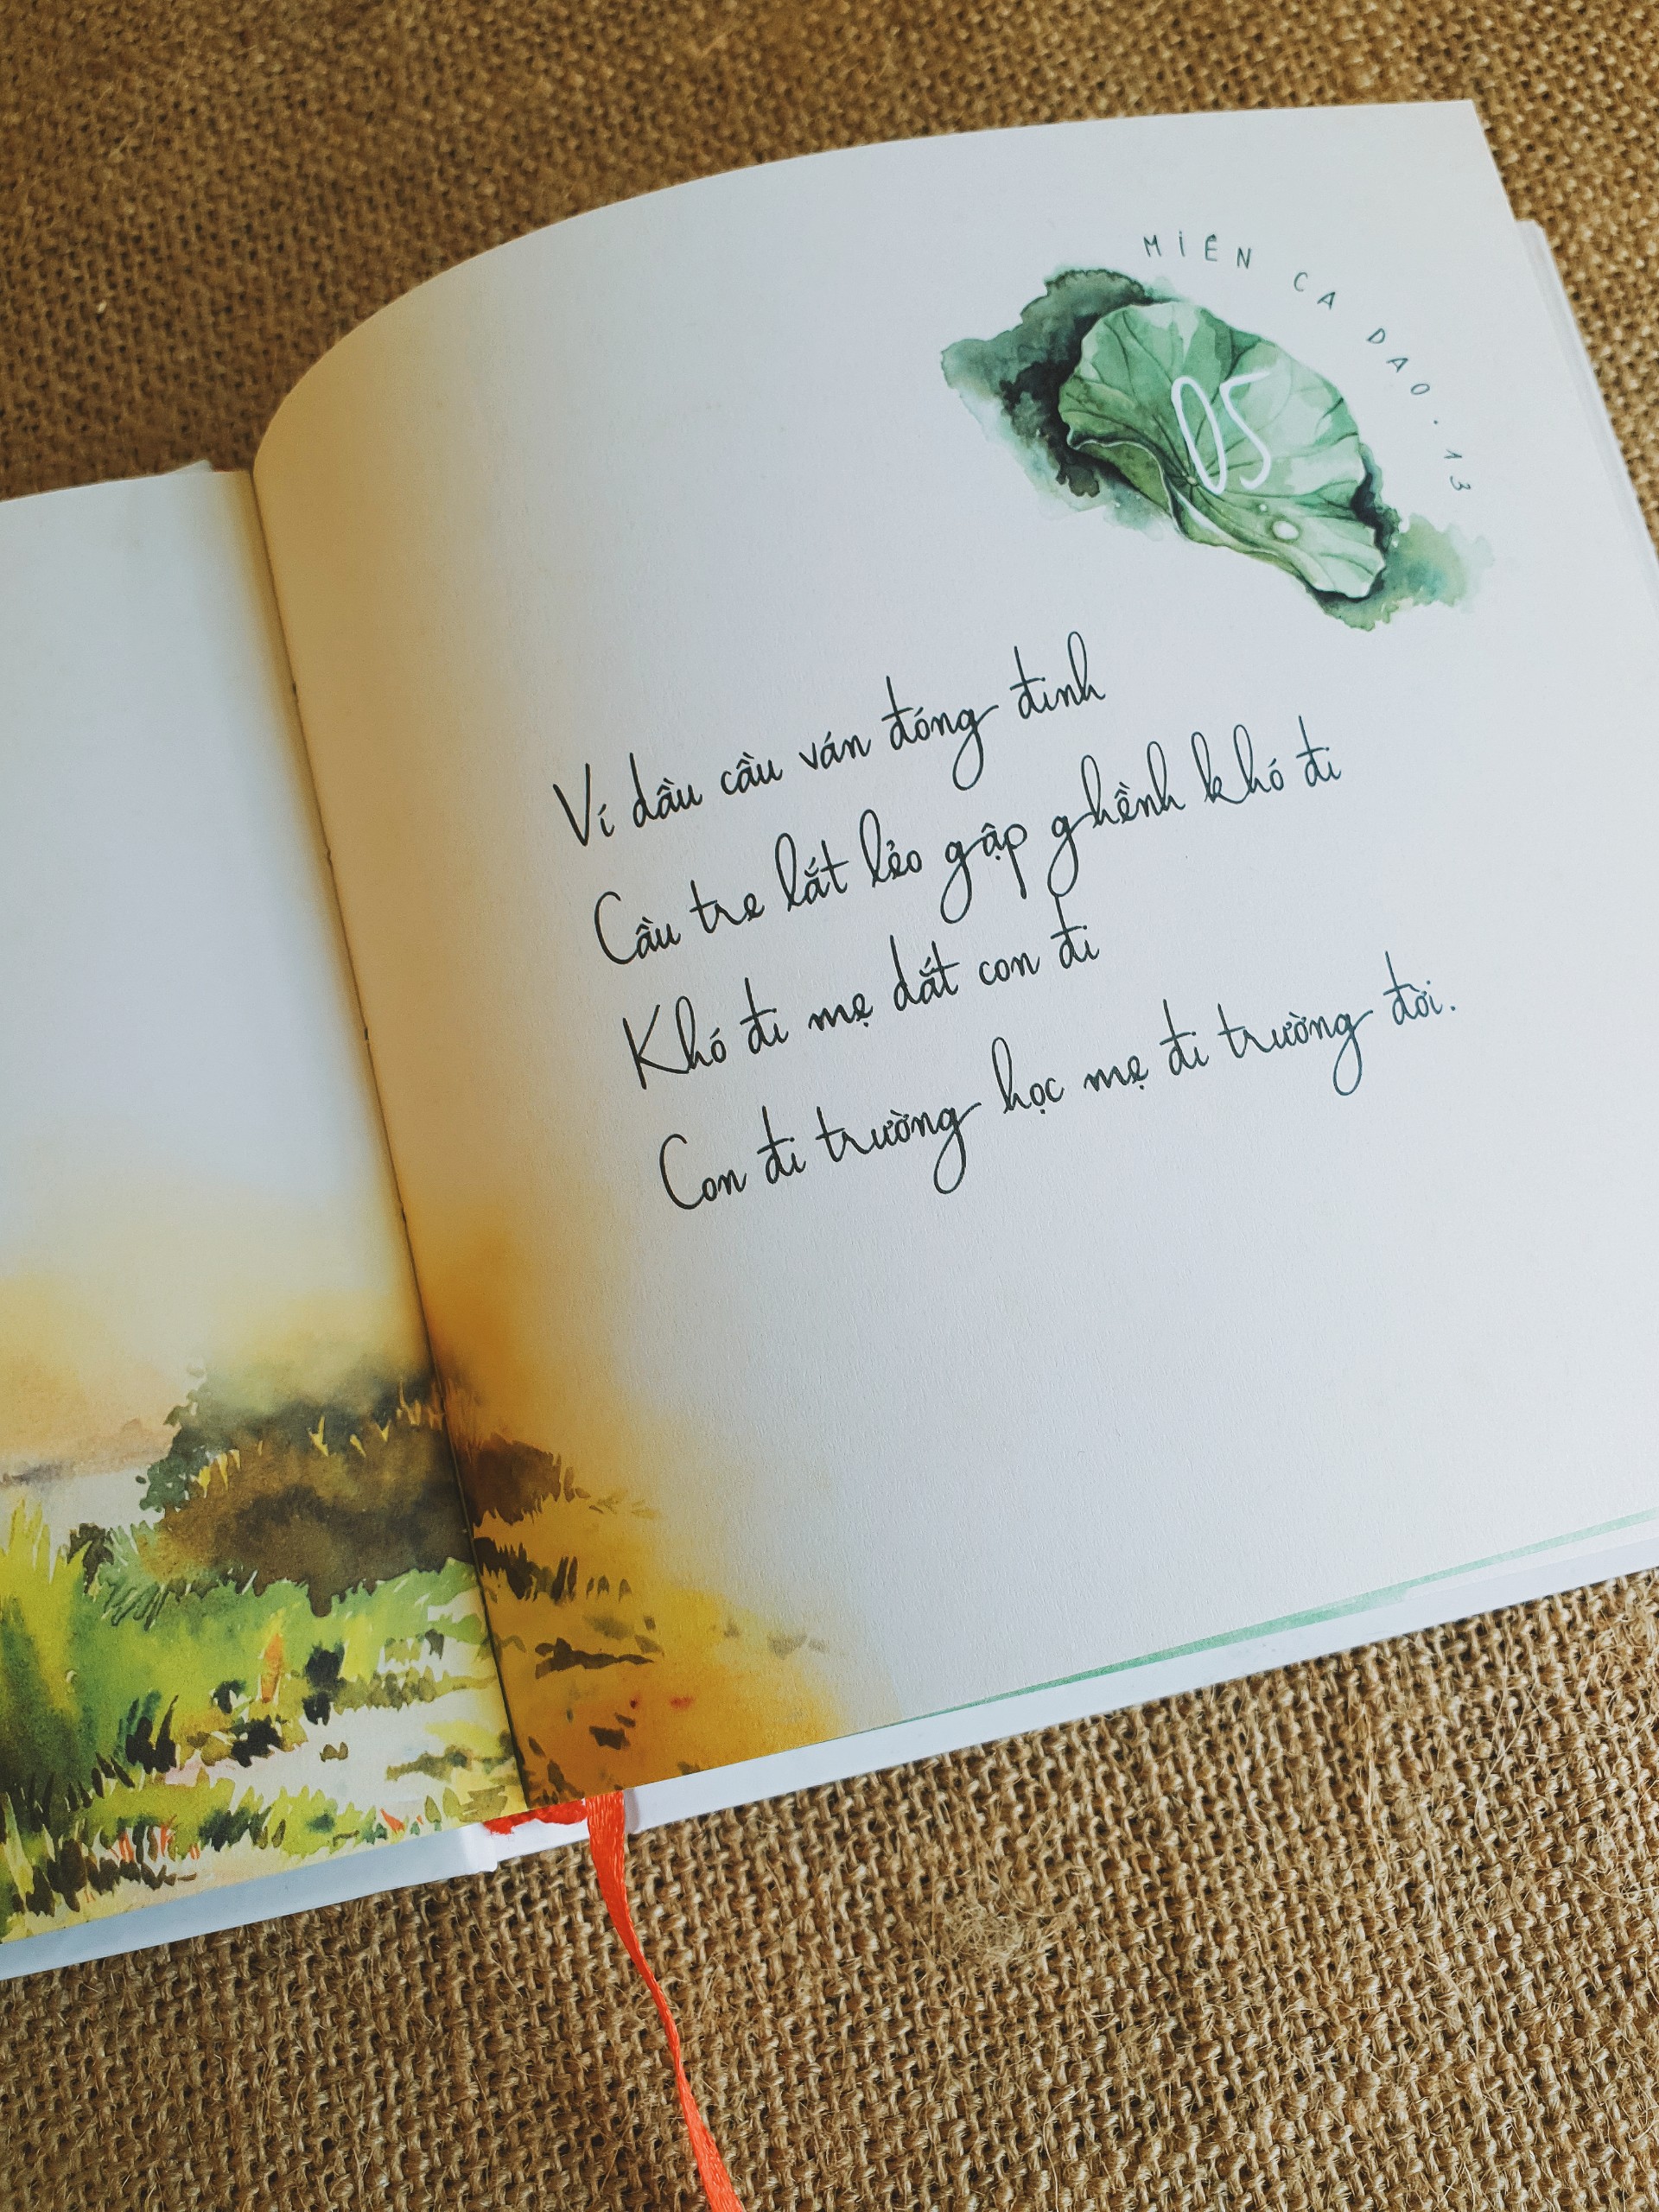 MIỀN CA DAO. 13
05
Ví dầu cầu ván đóng đinh
Cầu tre lắt lẻo gập ghềnh khó đi
Khó đi mẹ dắt con đi
Con đi trường học mẹ đi trường đời.